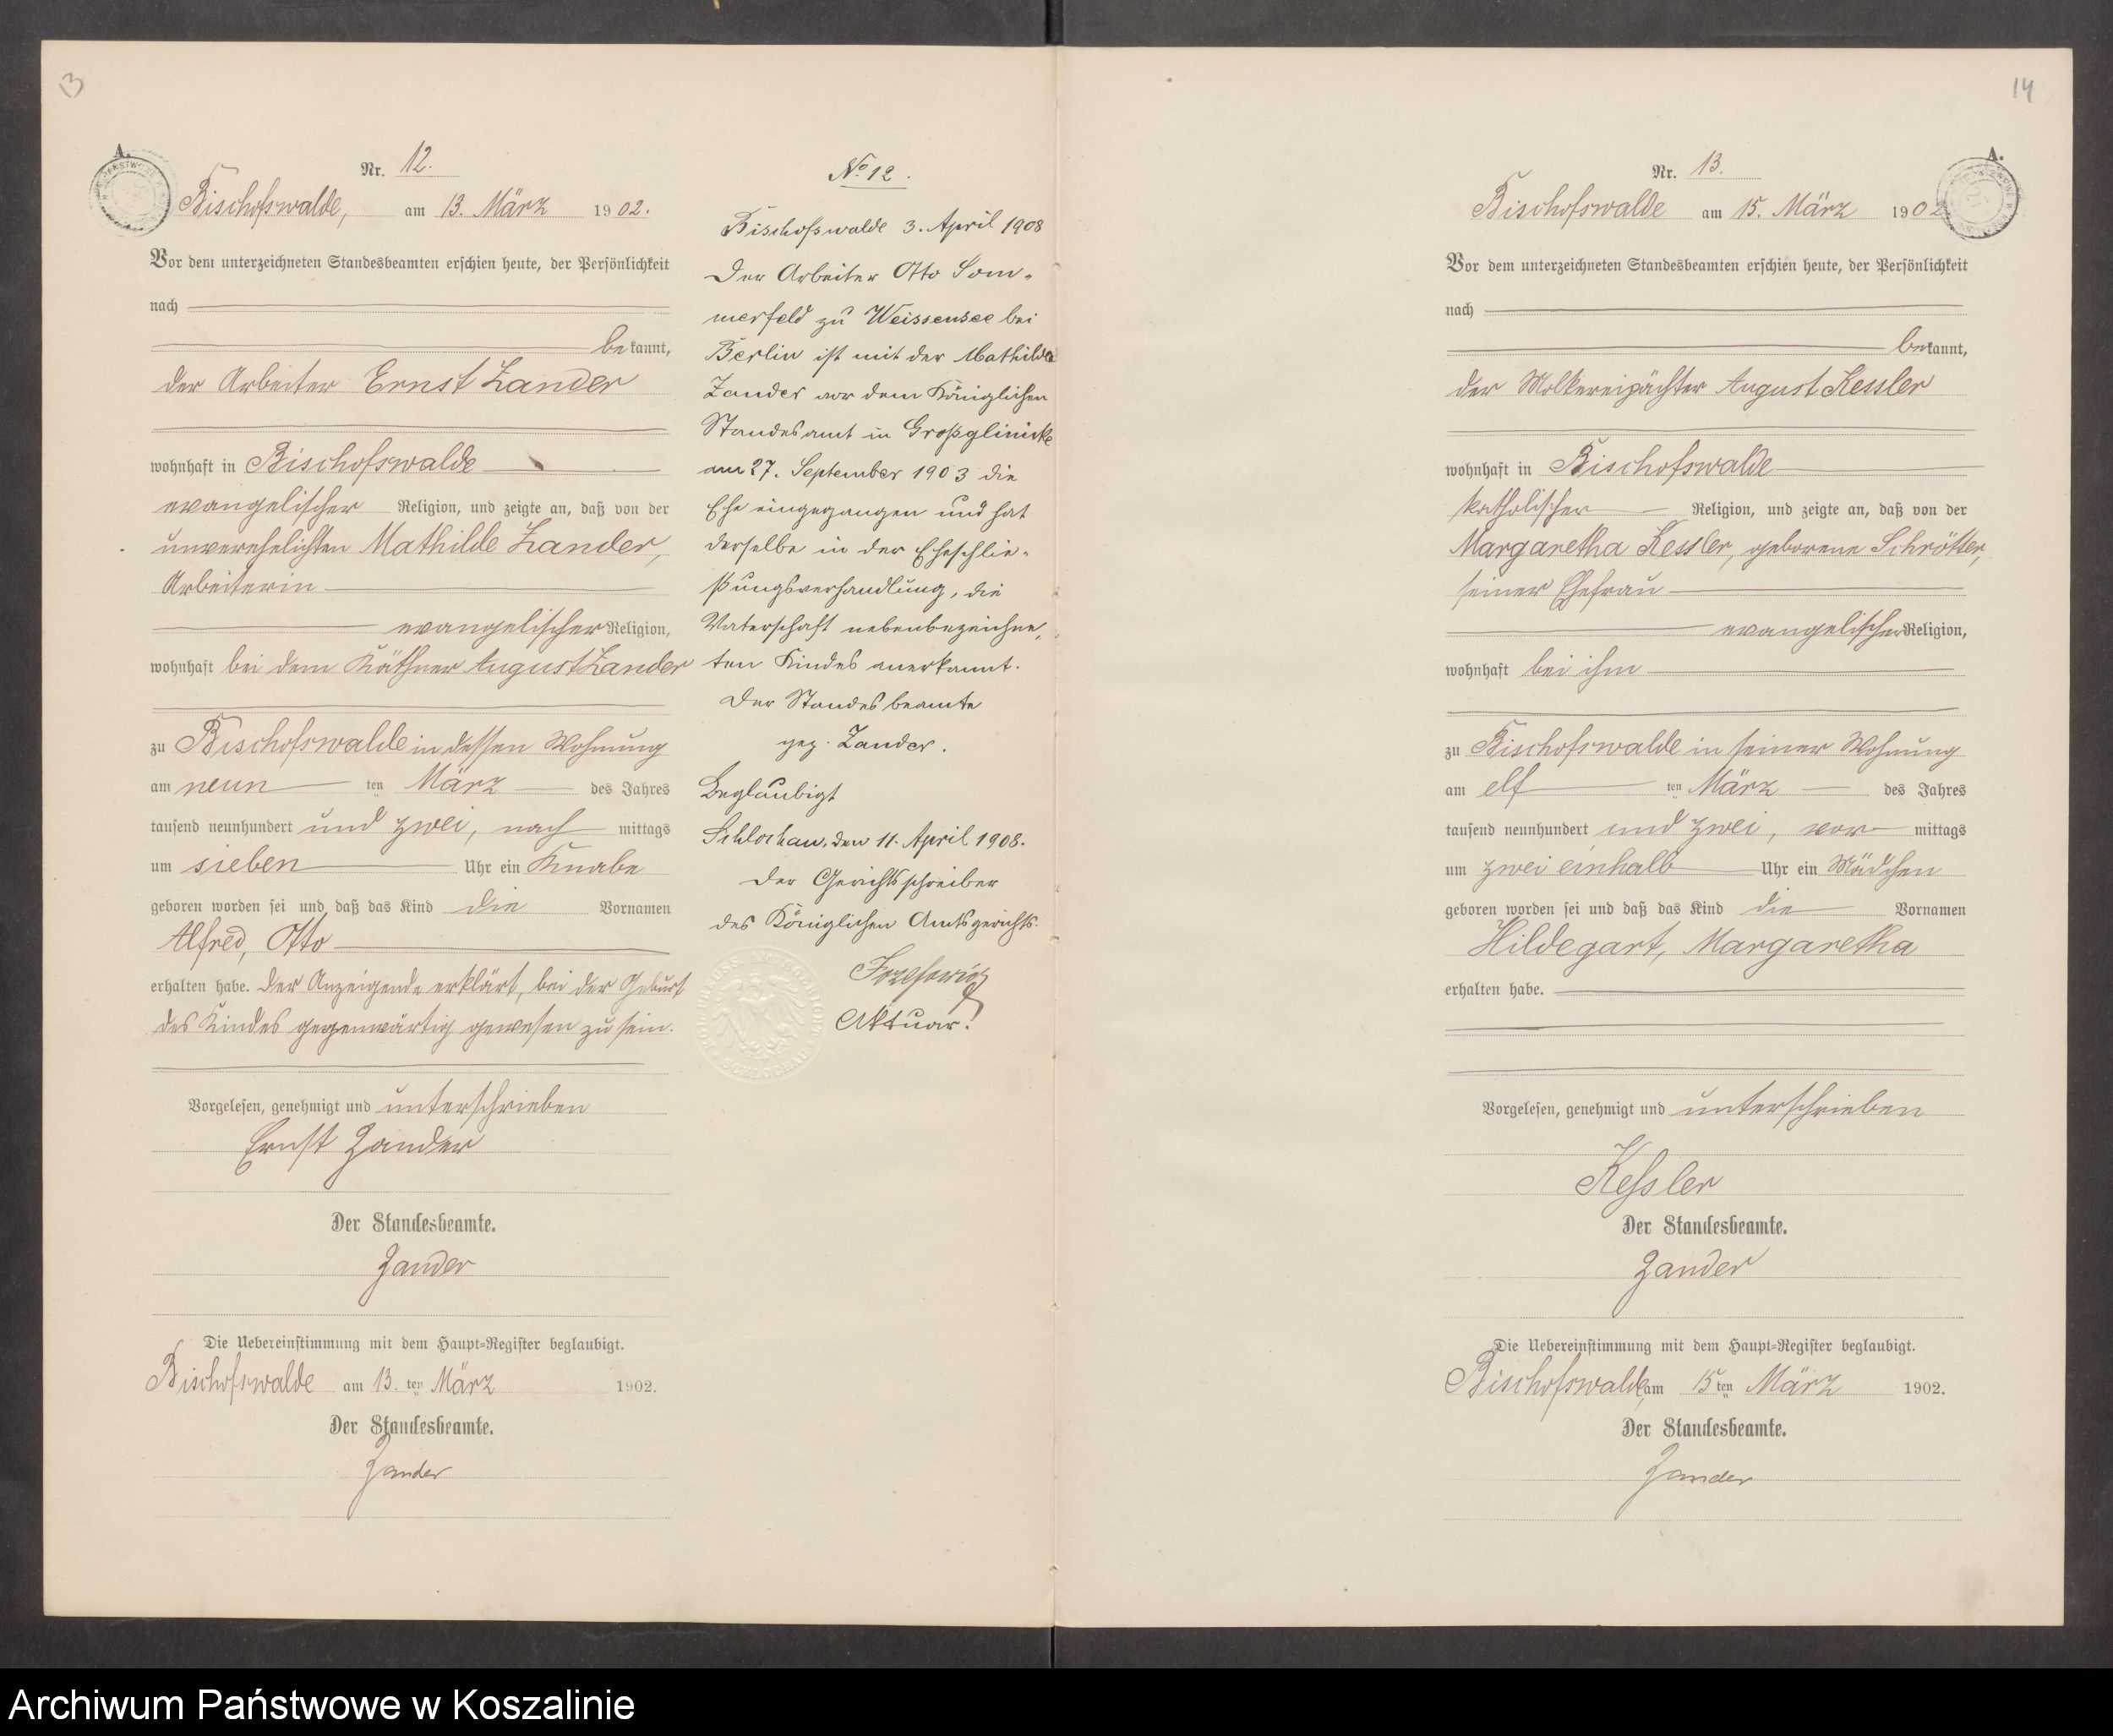 13
A.
Nr. 12.
Bischofswalde, am 13. März 1902.
Vor dem unterzeichneten Standesbeamten erschien heute, der Persönlichkeit
nach
bekannt,
der Arbeiter Ernst Zander
wohnhaft in Bischofswalde
evangelischer Religion, und zeigte an, daß von der
unverehelichten Mathilde Zander,
Arbeiterin
evangelischer Religion,
wohnhaft bei dem Käthner August Zander
zu Bischofswalde in dessen Wohnung
am neun ten März des Jahres
tausend neunhundert und zwei, nach mittags
um sieben Uhr ein Knabe
geboren worden sei und daß das Kind die Vornamen
Alfred, Otto
erhalten habe. Der Anzeigende erklärt, bei der Geburt
des Kindes gegenwärtig gewesen zu sein.
Vorgelesen, genehmigt und unterschrieben
Ernst Zander
Der Standesbeamte.
Zander
Die Uebereinstimmung mit dem Haupt-Register beglaubigt.
Bischofswalde am 13. ten März 1902.
Der Standesbeamte.
Zander
No 12.
Bischofswalde 3. April 1908
Der Arbeiter Otto Som-
merfeld zu Weissensee bei
Berlin ist mit der Mathilde
Zander vor dem Königlichen
Standesamt in Großglinicke
am 27. September 1903 die
Ehe eingegangen und hat
derselbe in der Eheschlie-
ßungsverhandlung, die
Vaterschaft nebenbezeichne-
ten Kindes anerkannt.
Der Standesbeamte
gez. Zander.
Beglaubigt
Schlochau, den 11. April 1908.
Der Gerichtsschreiber
des Königlichen Amtsgerichts.
Aktuar.
SCHLOCHAU
14
A.
Nr. 13.
Bischofswalde am 15. März 1902
Vor dem unterzeichneten Standesbeamten erschien heute, der Persönlichkeit
nach
bekannt,
der Molkereipächter August Kessler
wohnhaft in Bischofswalde
katholischer Religion, und zeigte an, daß von der
Margaretha Kessler, geborene Schrötter,
seiner Ehefrau
evangelischer Religion,
wohnhaft bei ihm
zu Bischofswalde in seiner Wohnung
am elf ten März des Jahres
tausend neunhundert und zwei, vor mittags
um zwei einhalb Uhr ein Mädchen
geboren worden sei und daß das Kind die Vornamen
Hildegart, Margaretha
erhalten habe.
Vorgelesen, genehmigt und unterschrieben
Kessler
Der Standesbeamte.
Zander
Die Uebereinstimmung mit dem Haupt-Register beglaubigt.
Bischofswalde, am 15 ten März 1902.
Der Standesbeamte.
Zander
Archiwum Państwowe w Koszalinie